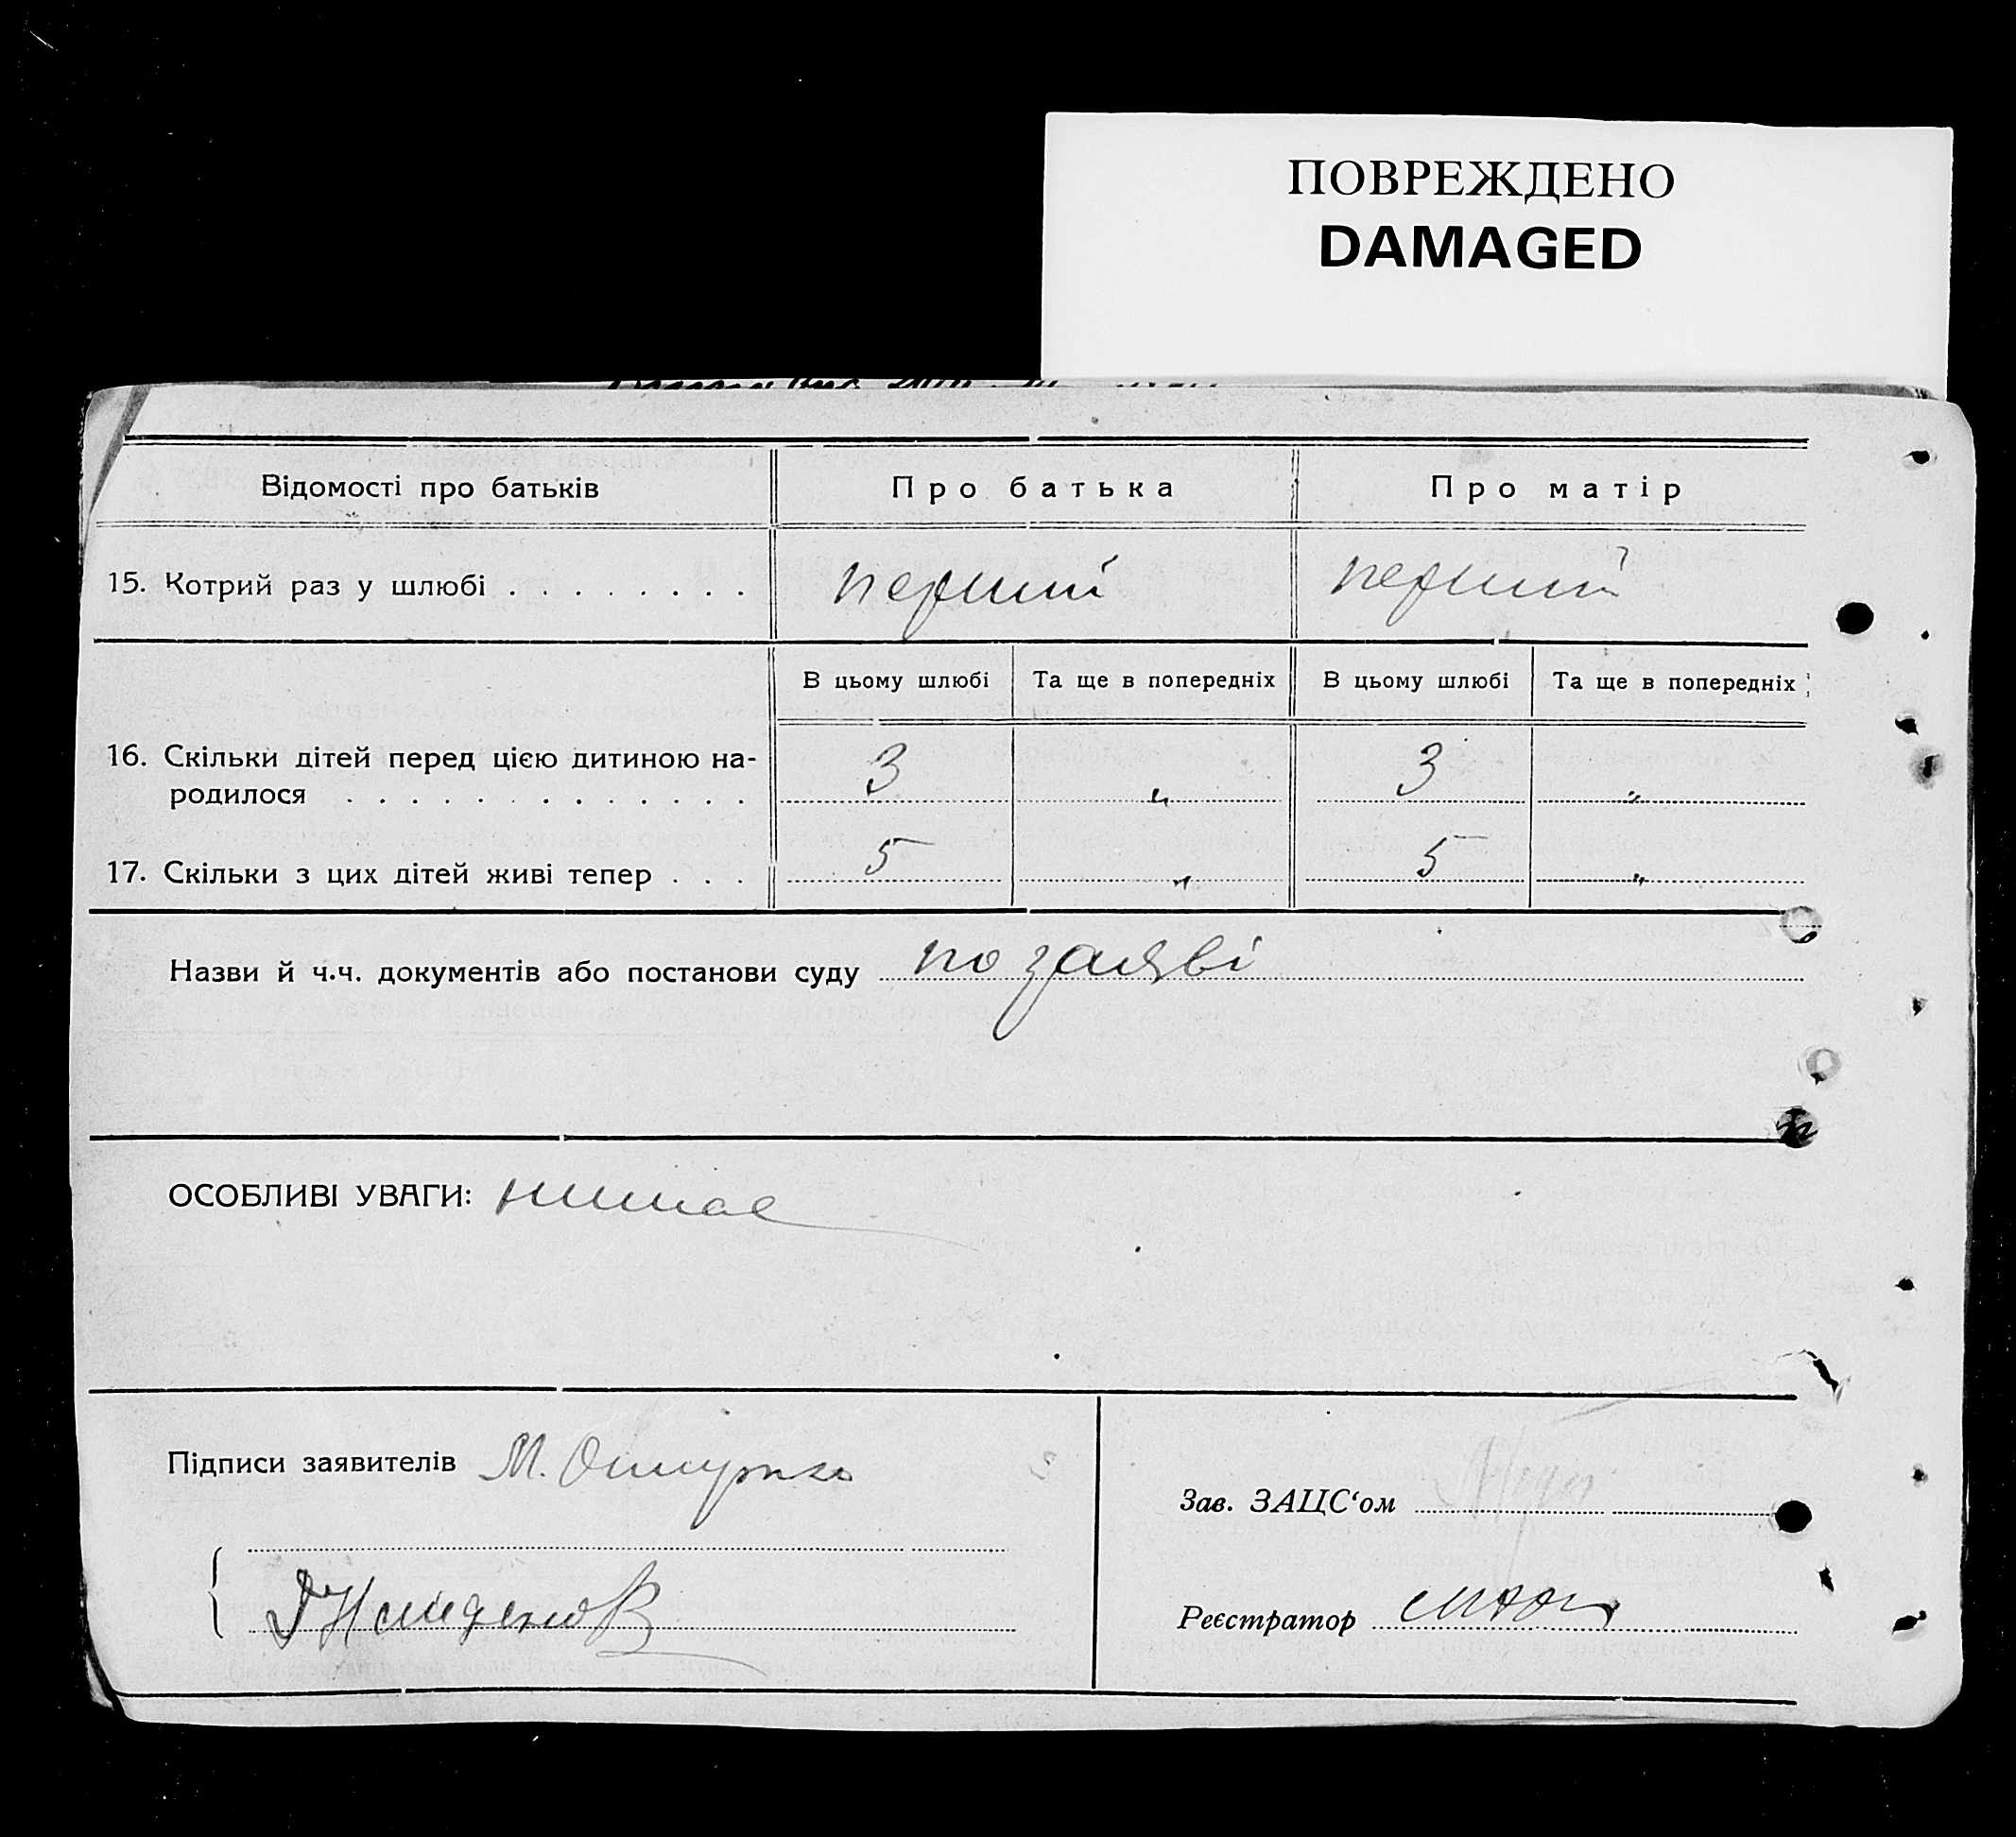 ПОВРЕЖДЕНО
DAMAGED
Відомості про батьків
Про батька
Про матір
15. Котрий раз у шлюбі . . . . . . . . перший перший
В цьому шлюбі Та ще в попередніх В цьому шлюбі Та ще в попередніх
16. Скільки дітей перед цією дитиною на-
родилося . . . . . . . . . . . . . 3 " 3 "
17. Скільки з цих дітей живі тепер . . . 5 " 5 "
Назви й ч.ч. документів або постанови суду по заяві
ОСОБЛИВІ УВАГИ: немає
Підписи заявителів М.
Зав. ЗАЦС‘ом
Реєстратор